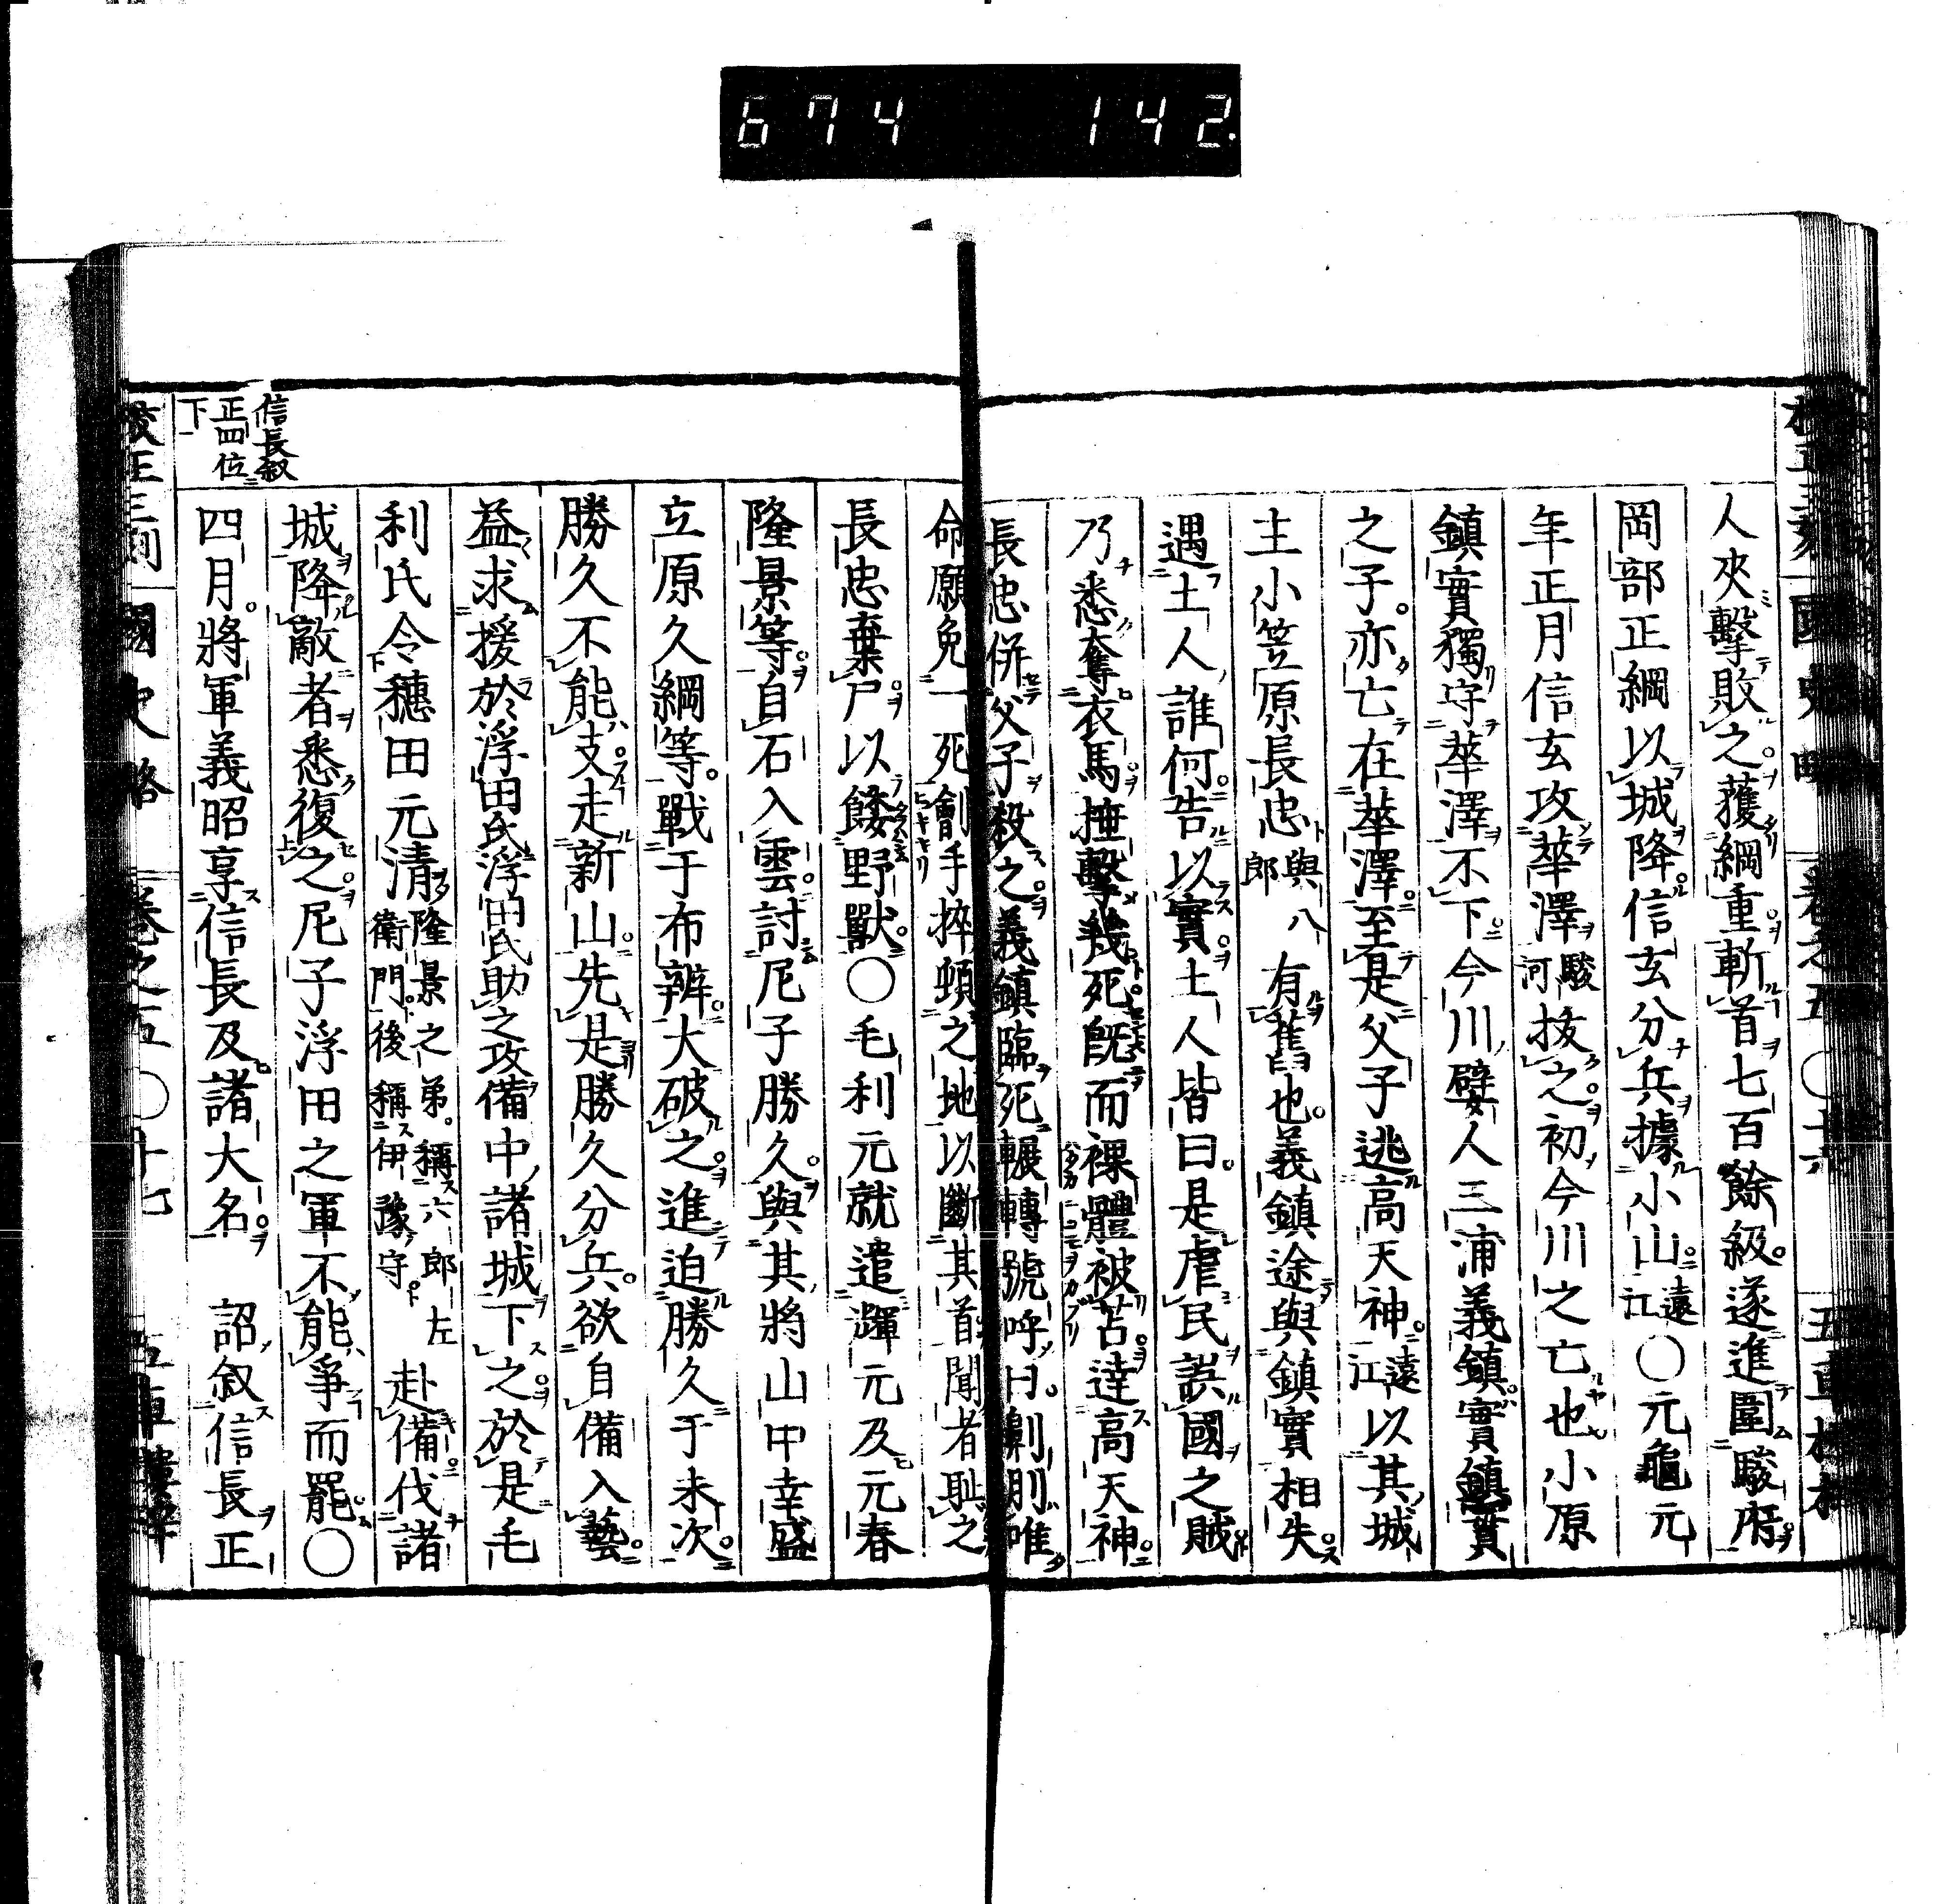 674 142
人夾擊敗之獲綱重斬首七百餘級。遂進圍駿府。
岡部正綱以城降。信玄分兵據小山。遠江〇元龜元
年正月信玄攻蕐澤駿河拔之。初今川之亡也小原
鎮實獨守蕐澤不下。今川嬖人三浦義鎮。實鎮實
之子。亦亡在蕐澤。至是父子逃高天神。遠江以其城
主小笠原長忠與八郎有舊也。義鎮途與鎮實相失。
遇土人誰何。告以實。土人皆曰。是虐民誤國之賊
乃悉奪衣馬。掩擊幾死。旣而裸體被苫達高天神。
長忠併父子殺之。義鎮臨死輾轉號呼曰。劓刖唯
命願免一死。劊手捽頓之地以斷其首聞者恥之
長忠棄尸以餧野獸。〇毛利元就遣輝元及元春
隆景等。自石入雲。討尼子勝久。與其將山中幸盛
立原久綱等。戰于布辨。大破之。進迫勝久于末次。
勝久不能支。走新山。先是勝久分兵。欲自備入藝。
益求援於浮田氏浮田氏助之攻備中諸城下之。於是毛
利氏令穗田元清隆景之弟。稱六郎左衛門。後稱伊豫守。赴備伐諸
城降敵者悉復之。尼子浮田之軍不能爭而罷。〇
四月。將軍義昭享信長及諸大名。 詔叙信長正
信長叙
正四位
下
校正三刻 國史略 卷之五 〇十七 五車樓梓